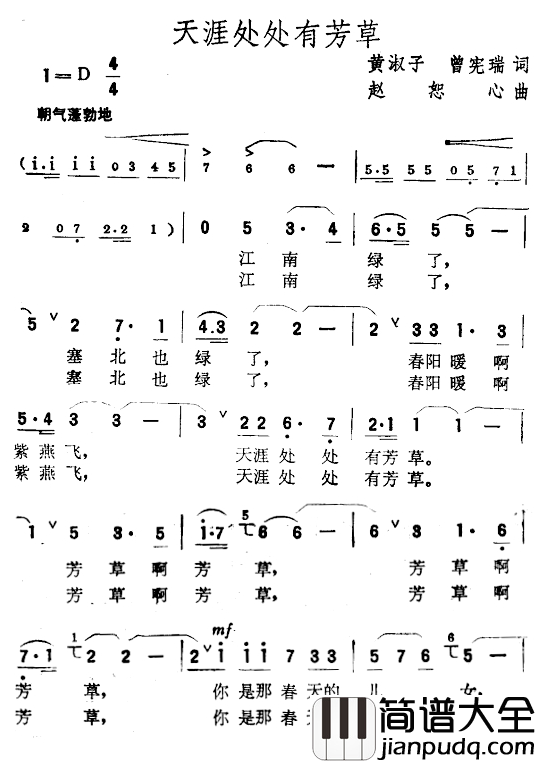 天涯处处有芳草
1=D 4/4
黄淑子 曾宪瑞 词
赵恕心 曲
朝气蓬勃地
(i·i i i 0 3 4 5 | 7 6 6 — | 5·5 5 5 0 5 7 1 |
2 0 7 2·2 1 ) | 0 5 3·4 | 6·5 5 5 |
江南绿了,
江南绿了,
5 ∨ 2 7·1 | 4·3 2 2 — | 2 ∨ 3 3 1·3 |
塞北也绿了, 春阳暖啊
塞北也绿了, 春阳暖啊
5·4 3 3 — | 3 ∨ 2 2 6·7 | 2·1 1 1 — |
紫燕飞, 天涯处处有芳草。
紫燕飞, 天涯处处有芳草。
1 ∨ 5 3·5 | i·7 5 6 6 — | 6 ∨ 3 1·6 |
芳草啊芳草, 芳草啊
芳草啊芳草, 芳草啊
mf
7·1 1 2 2 — | 2 ∨ i i i 7 3 3 | 6 6 6 5 — |
芳草, 你是那春天的儿女,
芳草, 你是那春
简谱大全
jianpudq.com